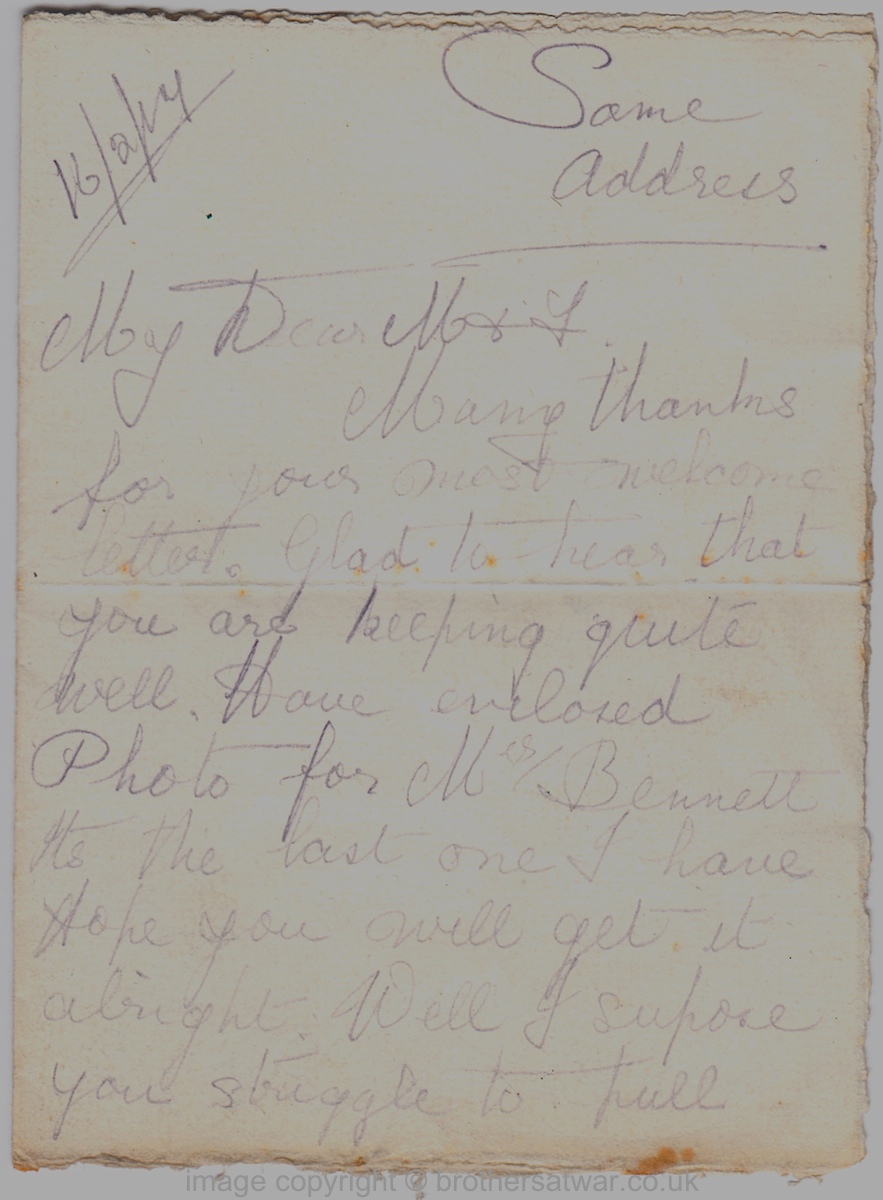 16/2/17
Same
Address
My Dear M & L.
Many thanks
for your most welcome
letter. Glad to hear that
you are keeping quite
well. Have enclosed
Photo for Mrs/ Bennett
Its the last one I have
Hope you will get it
alright. Well I supose
you struggle to pull
image copyright © brothersatwar.co.uk